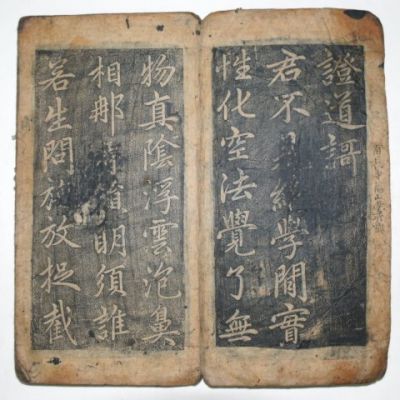 證道謌
君不學閒實
性化空法覺了無
物真陰浮雲泡鼻
相那明須誰
若生問放捉截